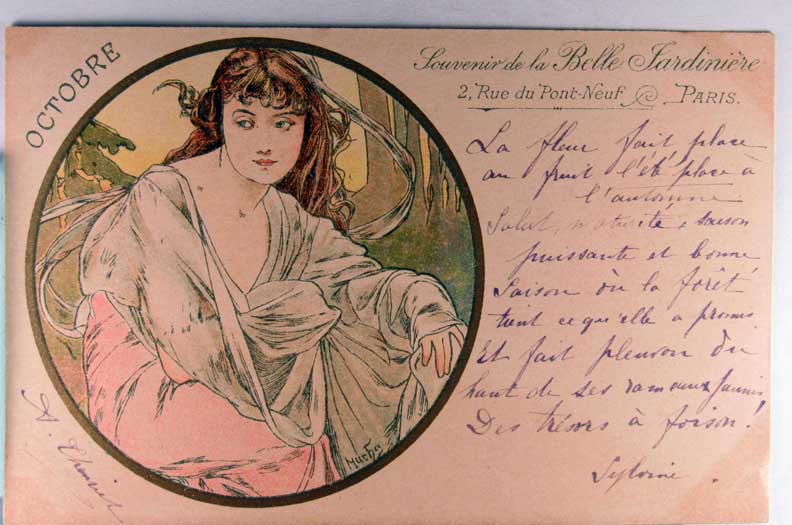 OCTOBRE
Souvenir de la Belle Jardinière
2, Rue du Pont-Neuf PARIS.
La fleur fait place
au fruit l'été place à
l'automne
Salut, saison
puissante et bonne
Saison où la forêt
tient ce qu'elle a promis
Et fait pleuvoir du
haut de ses rameaux jaunis
Des trésors à foison!
Mucha
A.